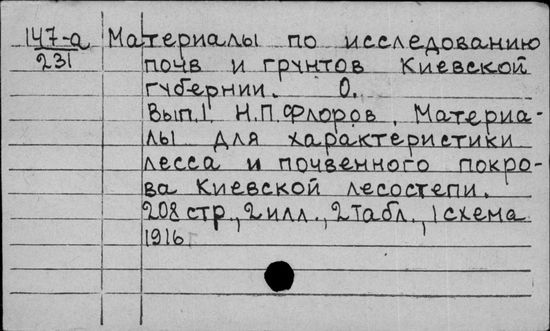 147-а Материалы по исследованию
231 почв и грунтов Киевской
губернии. О.
Вып.1. Н.П.Флоров. Материа-
лы для характеристики
лесса и почвенного покро-
ва Киевской лесостепи.
208 стр., 2 илл., 2 табл., 1 схема
1916г